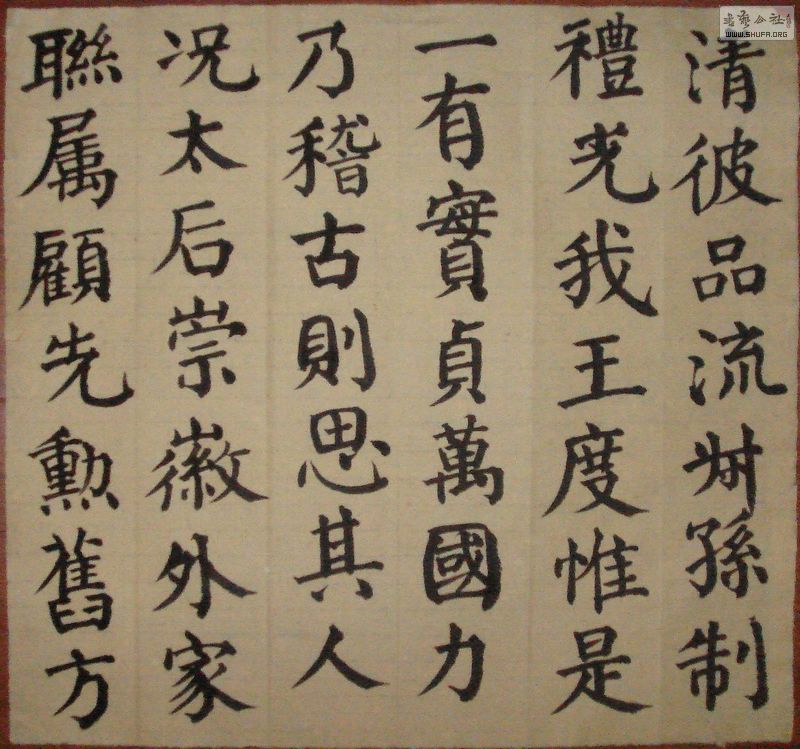 清彼品流叔孫制
禮光我王度惟是
一有實貞萬國力
乃稽古則思其人
况太后崇徽外家
聯属顧先勲舊方
書藝公社
WWW.SHUFA.ORG